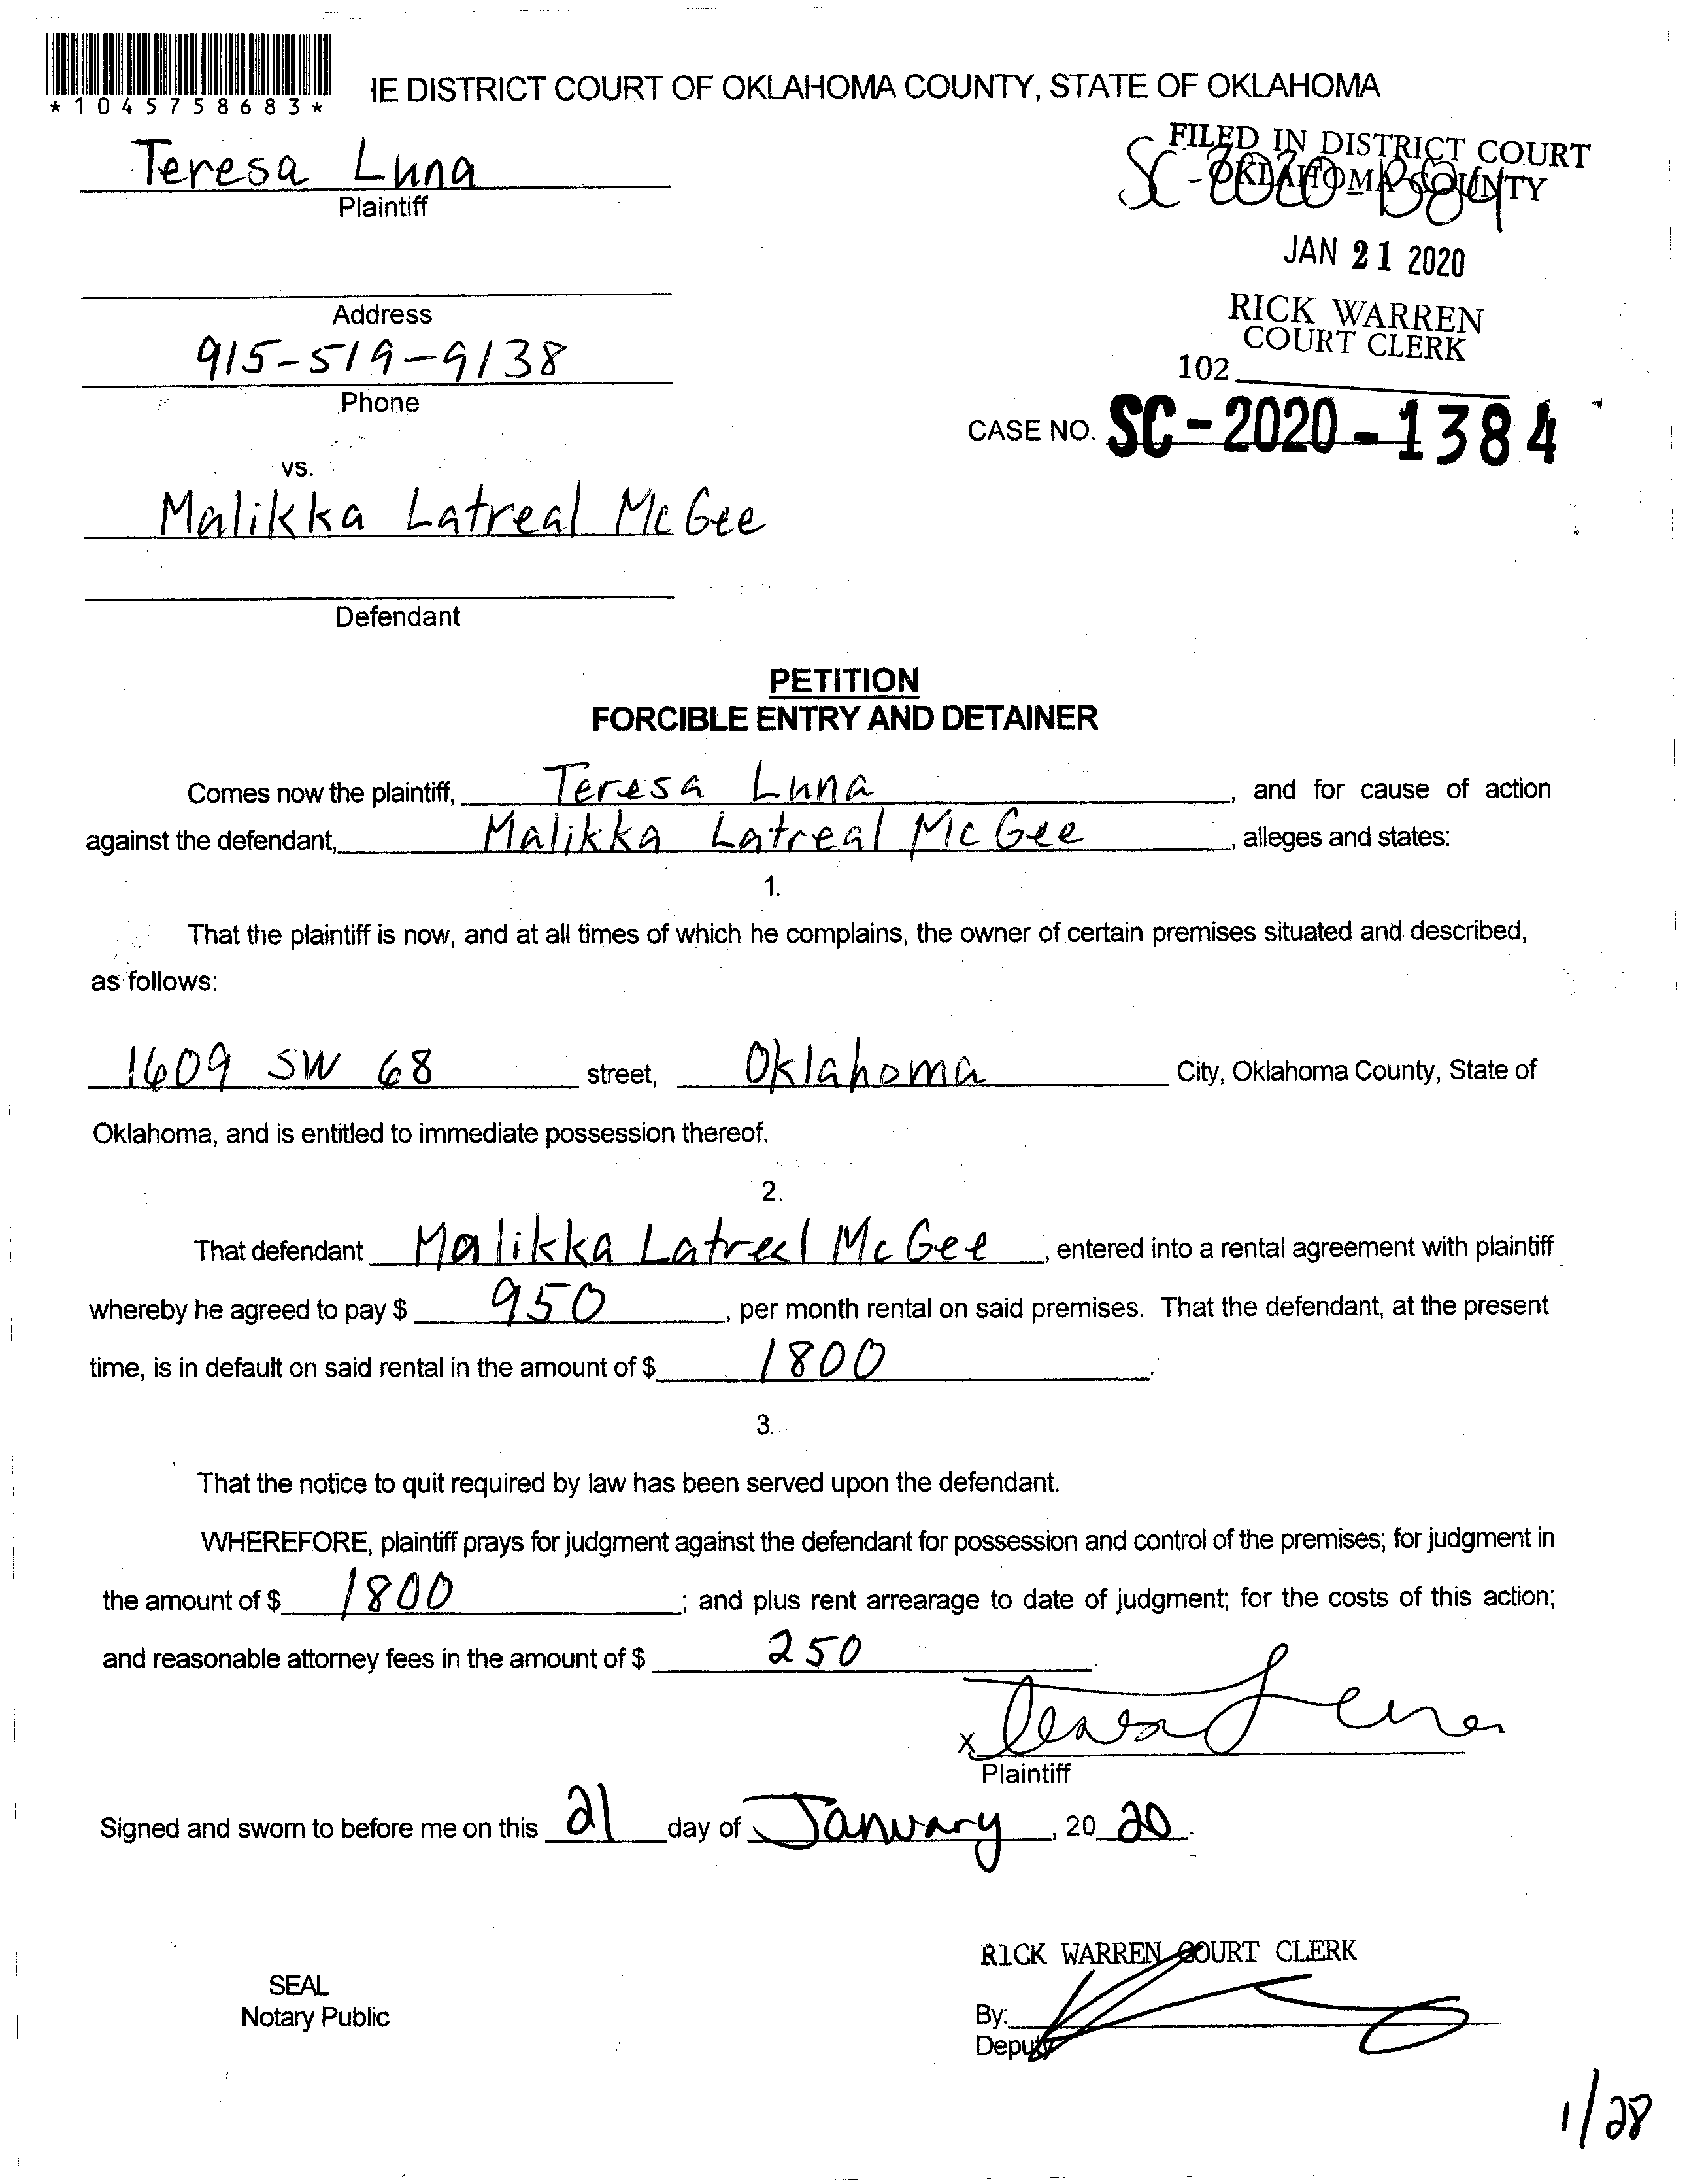 *1045758683*
IE DISTRICT COURT OF OKLAHOMA COUNTY, STATE OF OKLAHOMA
Teresa Luna
Plaintiff
FILED IN DISTRICT COURT
OKLAHOMA COUNTY
SC-2020-1384
JAN 21 2020
RICK WARREN
COURT CLERK
102
Address
915-519-9138
Phone
CASE NO. SC-2020-1384
vs.
Malikka Latreal McGee
Defendant
PETITION
FORCIBLE ENTRY AND DETAINER
Comes now the plaintiff, Teresa Luna, and for cause of action
against the defendant, Malikka Latreal McGee, alleges and states:
1.
That the plaintiff is now, and at all times of which he complains, the owner of certain premises situated and described,
as follows:
1609 SW 68 street, Oklahoma City, Oklahoma County, State of
Oklahoma, and is entitled to immediate possession thereof.
2.
That defendant Malikka Latreal McGee, entered into a rental agreement with plaintiff
whereby he agreed to pay $ 950, per month rental on said premises. That the defendant, at the present
time, is in default on said rental in the amount of $ 1800.
3.
That the notice to quit required by law has been served upon the defendant.
WHEREFORE, plaintiff prays for judgment against the defendant for possession and control of the premises; for judgment in
the amount of $ 1800; and plus rent arrearage to date of judgment; for the costs of this action;
and reasonable attorney fees in the amount of $ 250.
x Teresa Luna
Plaintiff
Signed and sworn to before me on this 21 day of January, 2020.
RICK WARREN COURT CLERK
SEAL
Notary Public
By:
Deputy
1/28